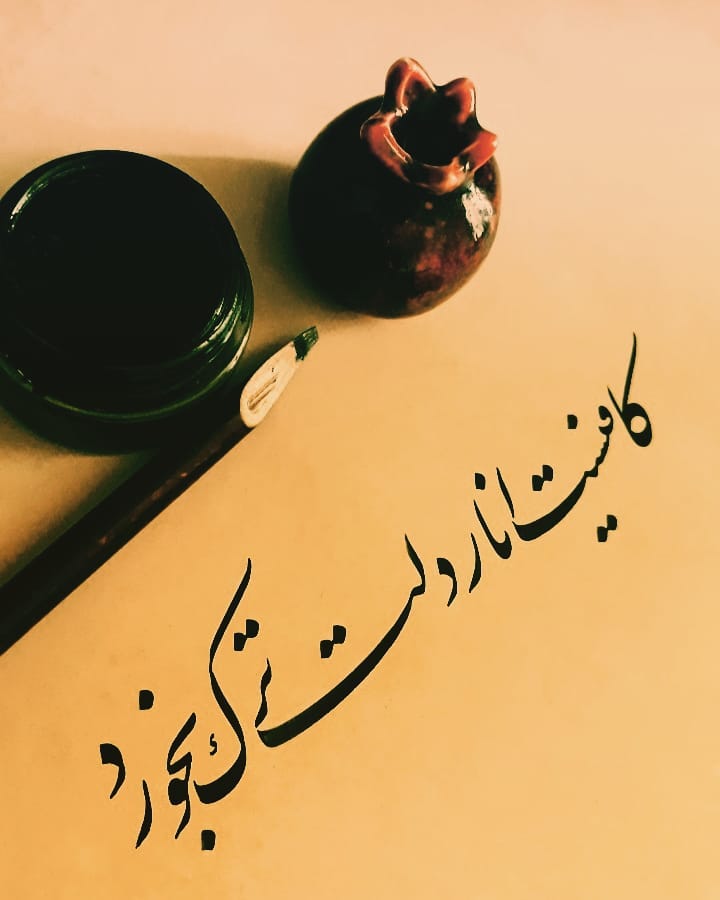 کافیست انار دلت ترک بخورد